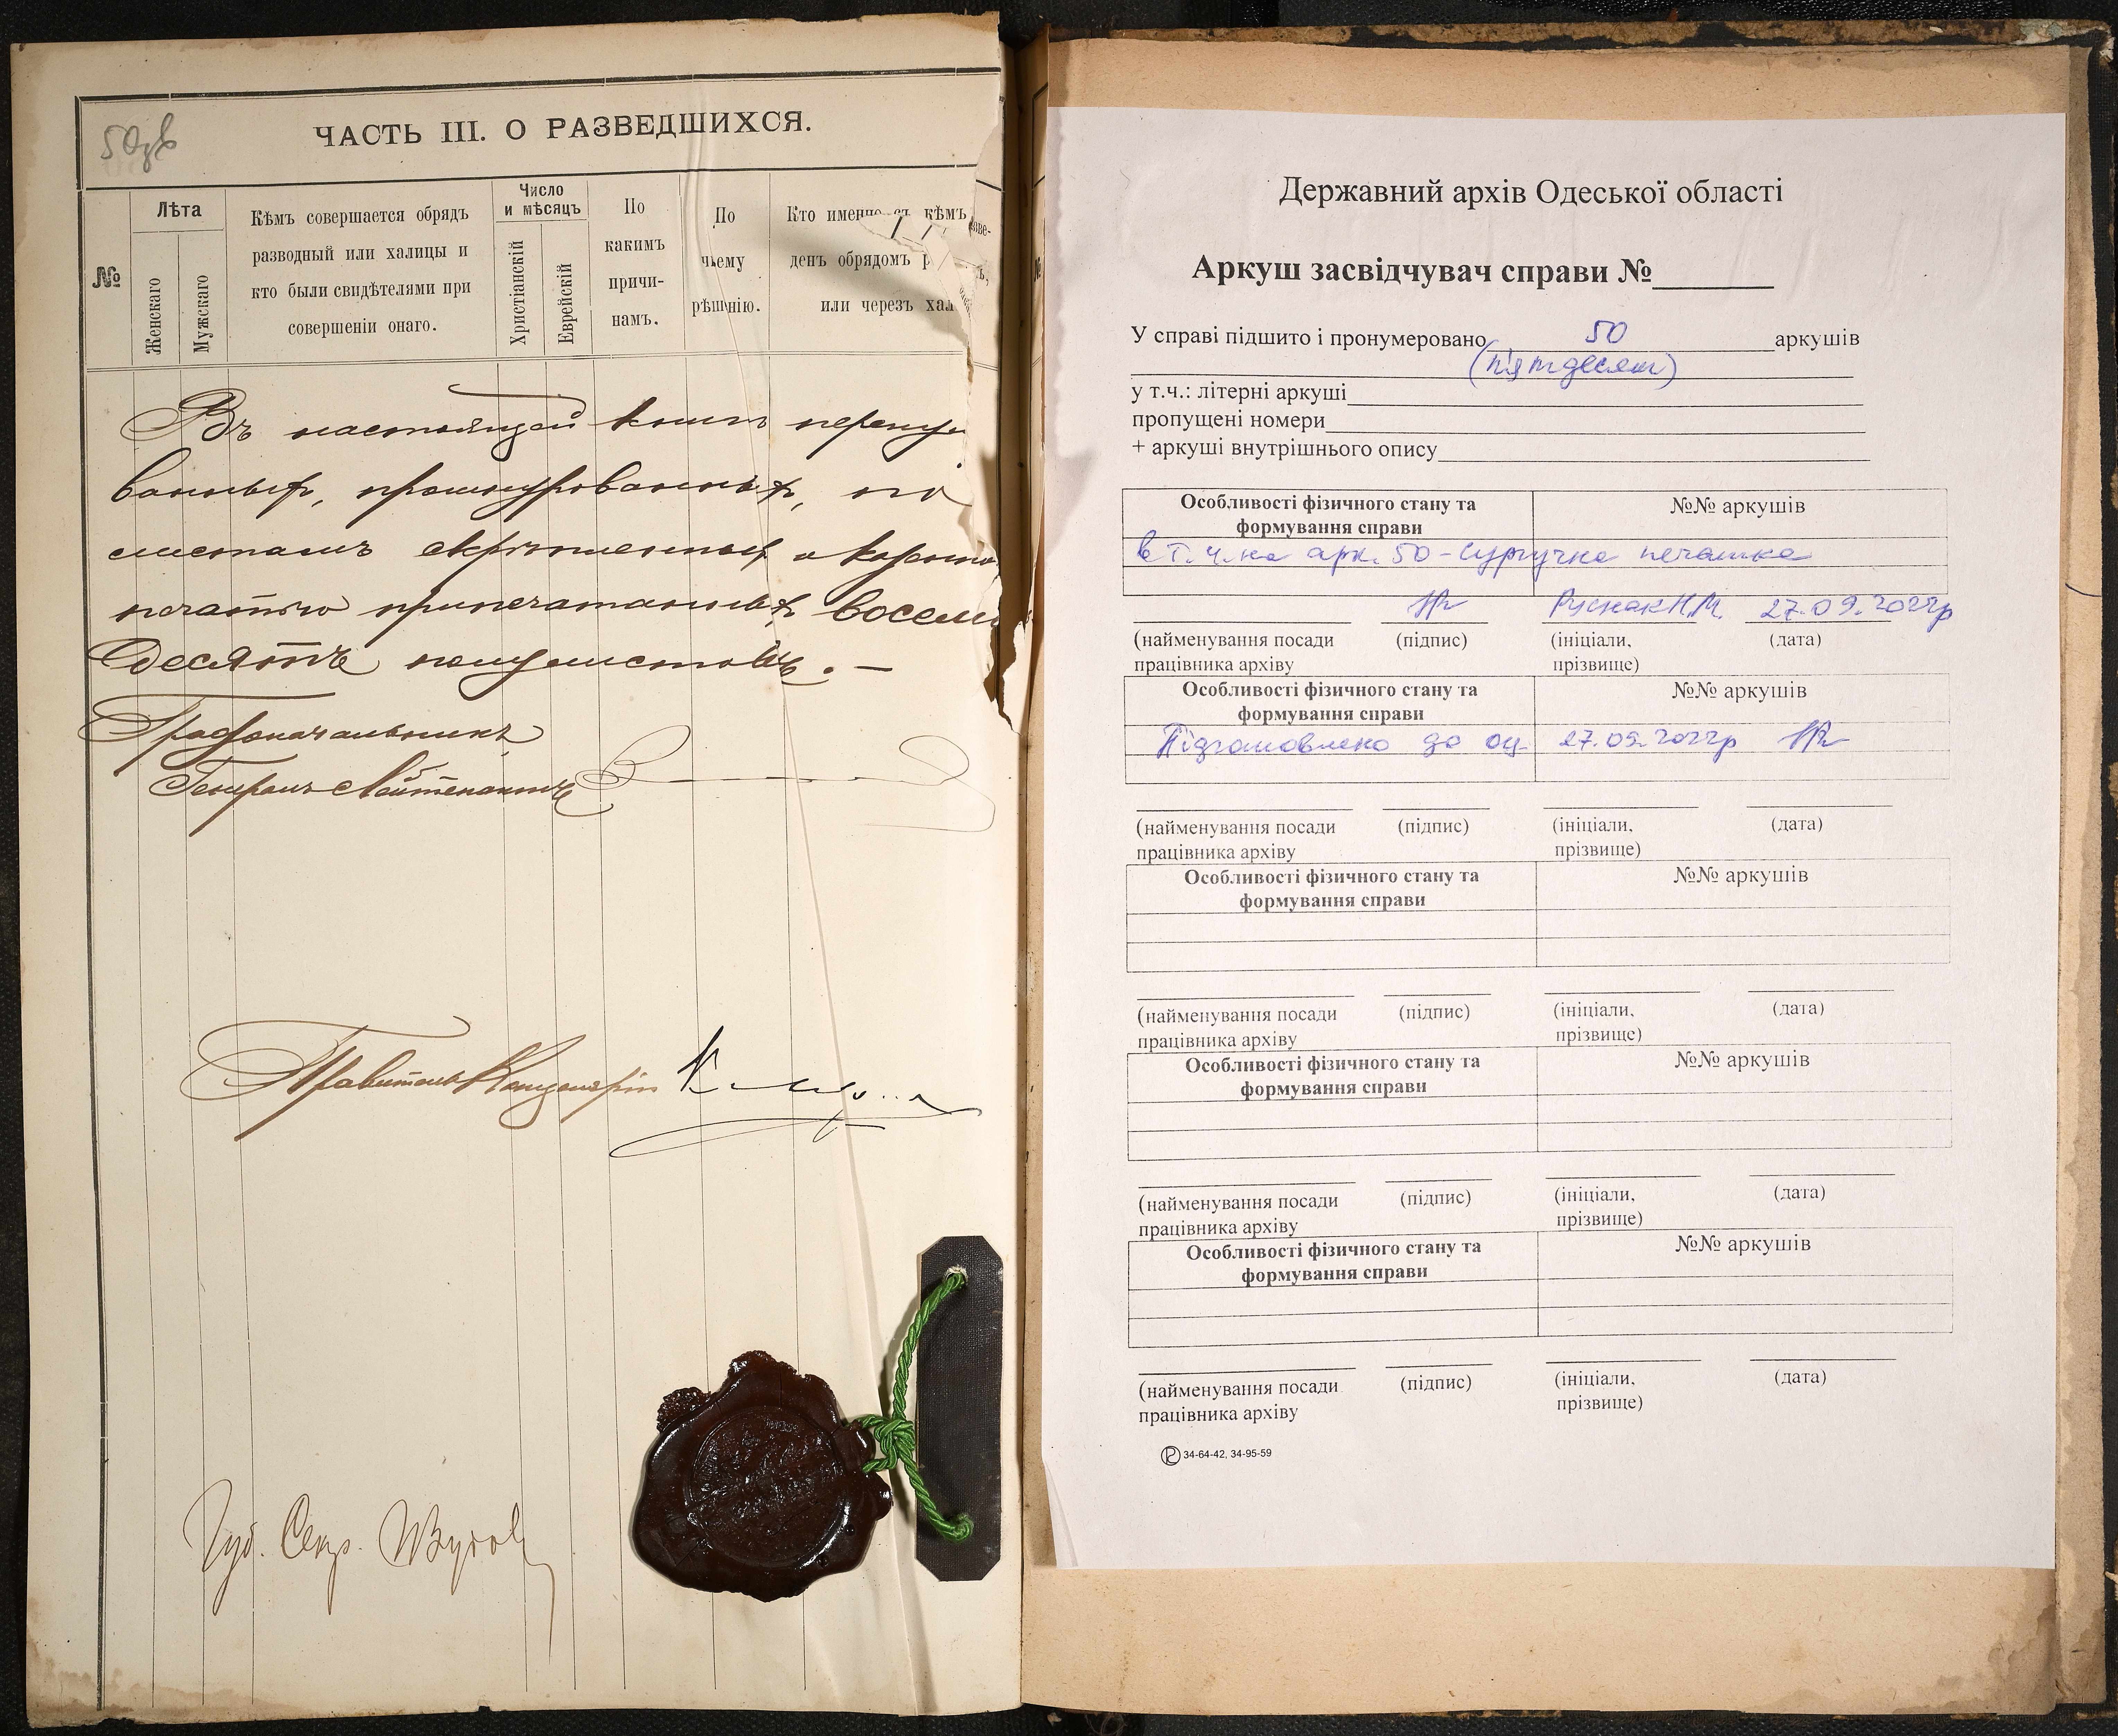 50зв
ЧАСТЬ III. О РАЗВЕДШИХСЯ.
№
Лѣта
Женскаго
Мужскаго
Кѣмъ совершается обрядъ
разводный или халицы и
кто были свидѣтелями при
совершеніи онаго.
Число
и мѣсяцъ
Христіанскій
Еврейскій
По
какимъ
причи-
намъ.
По
чьему
рѣшенію.
Кто именно съ кѣмъ
денъ обрядомъ
или через хал
Въ настоящей книгѣ перену
ванныхъ, прошнурованныхъ, по
листамъ скрѣпленныхъ и
печатью припечатанныхъ восемь
десятъ полулистовъ. —
Градоначальникъ
Генералъ-Лейтенантъ
Правитель Канцеляріи
Губ. Секр.
Державний архів Одеської області
Аркуш засвідчувач справи №
У справі підшито і пронумеровано 50 аркушів
(п'ятдесят)
у т.ч.: літерні аркуші
пропущені номери
+ аркуші внутрішнього опису
Особливості фізичного стану та
формування справи
№№ аркушів
в т.ч. на арк. 50 - сургучна печатка
Руснак Н.М. 27.09.2022р
(найменування посади
працівника архіву
(підпис)
(ініціали,
прізвище)
(дата)
Особливості фізичного стану та
формування справи
№№ аркушів
Підготовлено до оц. 27.09.2022р
(найменування посади
працівника архіву
(підпис)
(ініціали,
прізвище)
(дата)
Особливості фізичного стану та
формування справи
№№ аркушів
(найменування посади
працівника архіву
(підпис)
(ініціали,
прізвище)
(дата)
Особливості фізичного стану та
формування справи
№№ аркушів
(найменування посади
працівника архіву
(підпис)
(ініціали,
прізвище)
(дата)
Особливості фізичного стану та
формування справи
№№ аркушів
(найменування посади
працівника архіву
(підпис)
(ініціали,
прізвище)
(дата)
34-64-42, 34-95-59